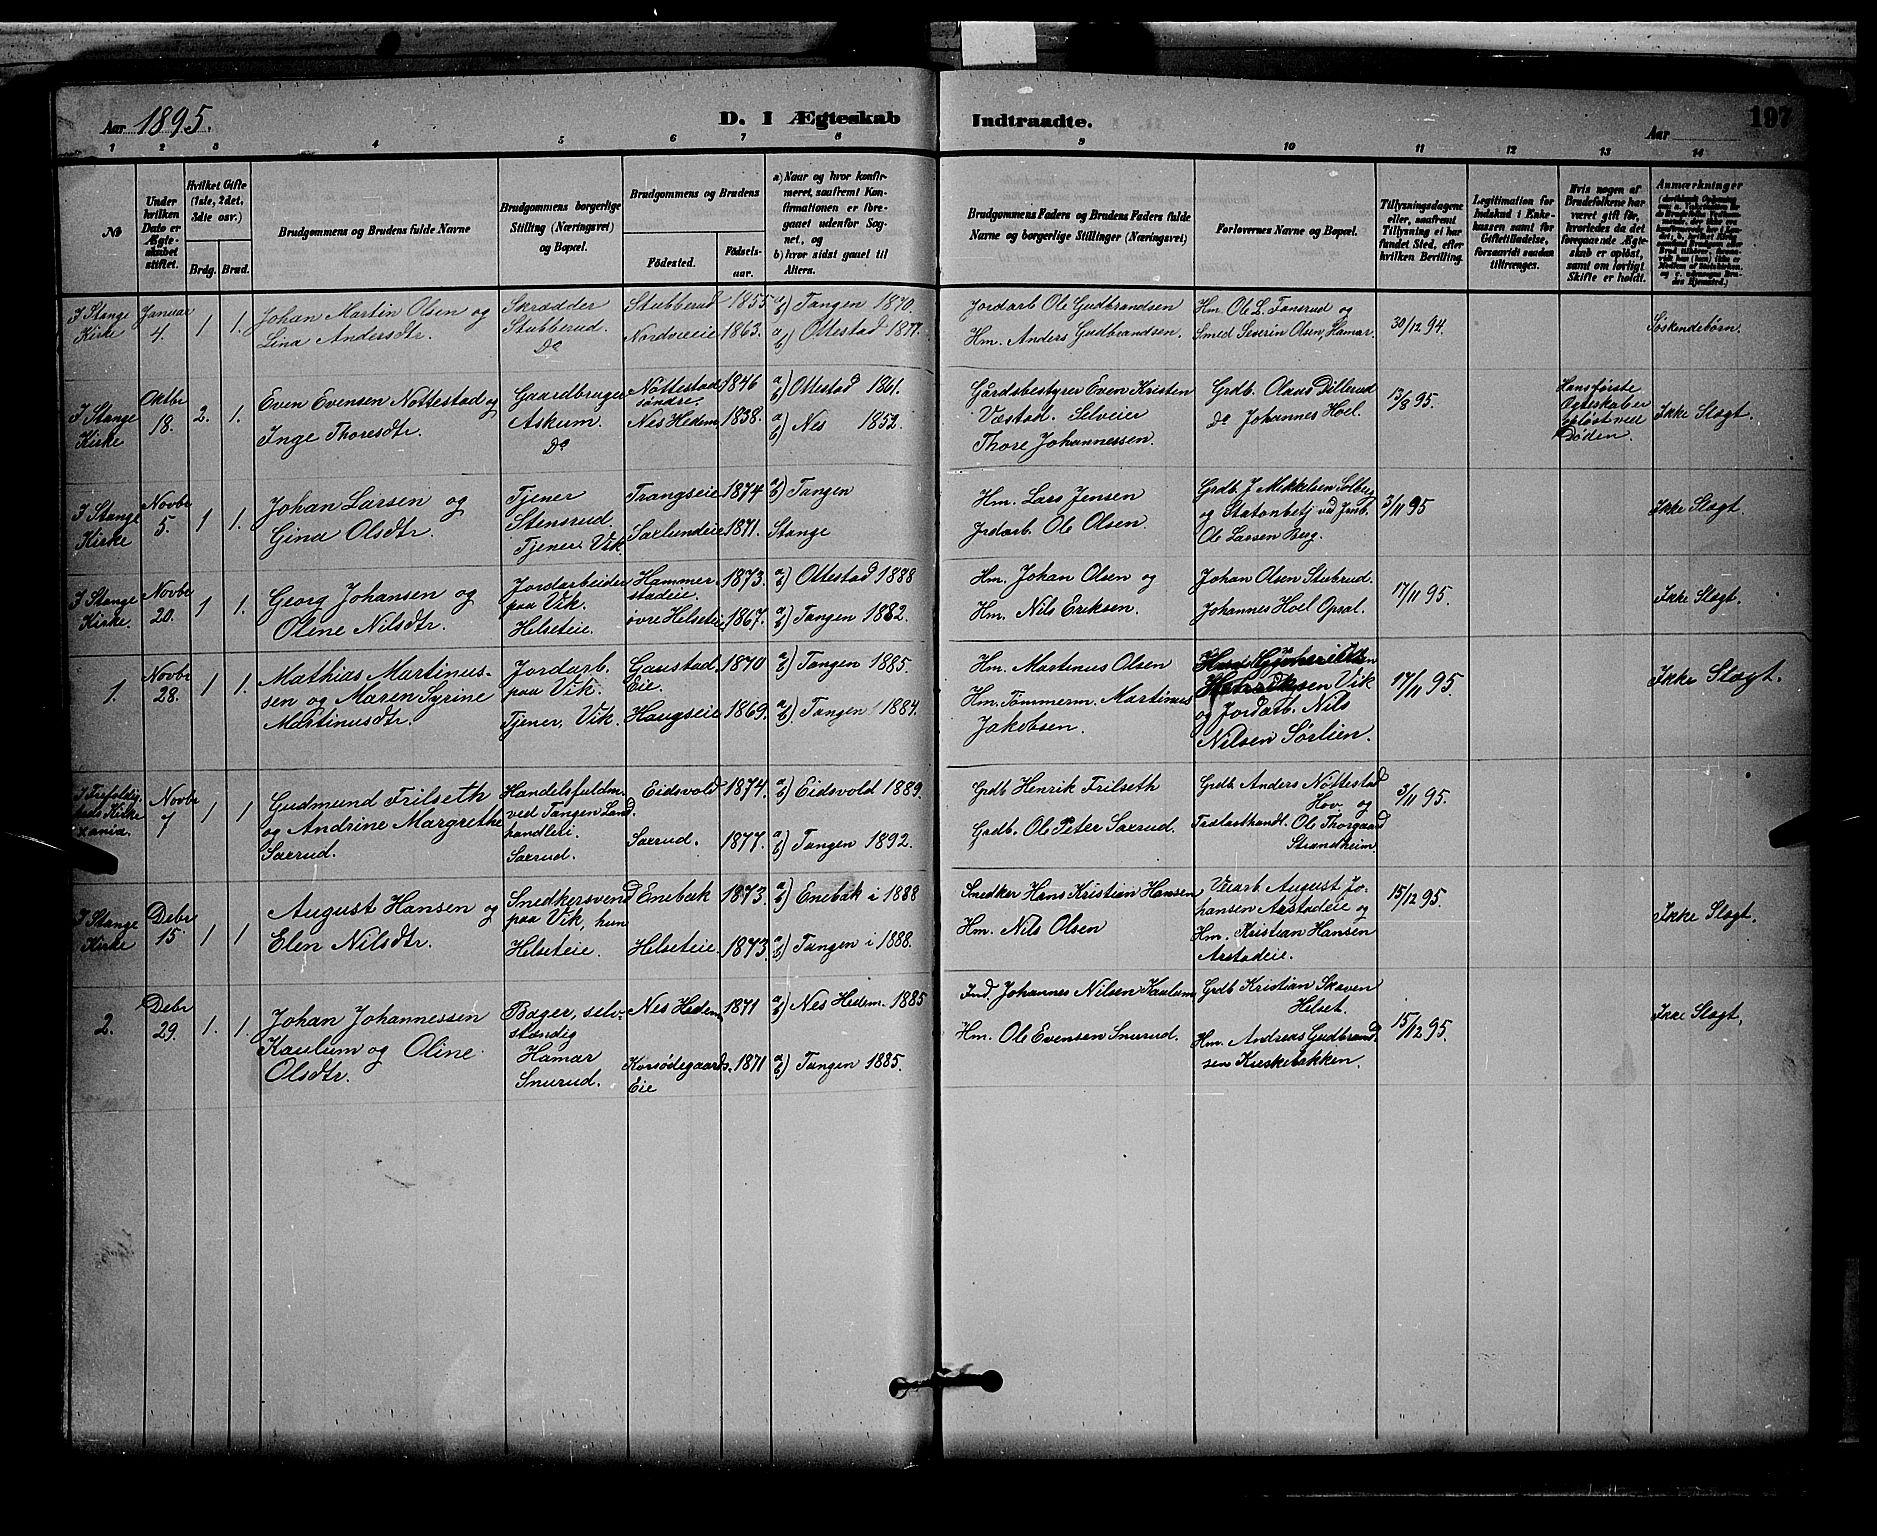 Aar 1895.
D. I Ægteskab Indtraadte.
Aar
197
1 2 3 4 5 6 7 8 9 10 11 12 13 14
No
Under hvilken Dato er Ægteskabet stiftet.
Hvilket Gifte (1ste, 2det, 3die osv.)
Brdg. Brud.
Brudgommens og Brudens fulde Navne
Brudgommens borgerlige Stilling (Næringsvei) og Bopæl.
Brudgommens og Brudens
Fødested.
Fødselsaar.
a) Naar og hvor konfirmeret, saafremt Konfirmationen er foregaaet udenfor Sognet, og
b) hvor sidst gaaet til Alters.
Brudgommens Faders og Brudens Faders fulde Navne og borgerlige Stillinger (Næringsvei)
Forlovernes Navne og Bopæl.
Tillysningsdagene eller, saafremt Tillysning ei har fundet Sted, efter hvilken Bevilling.
Legitimation for Indskud i Enkekassen samt for Giftetilladelse, forsaavidt saadan tiltrænges.
Hvis nogen af Brudefolkene har været gift før, hvorledes da det foregaaende Ægteskab er opløst, samt om lovligt Skifte er holdt.
Anmærkninger
I Stange Kirke
Januar 4.
1 1.
Johan Martin Olsen og
Lina Andersdtr.
Skrædder
Stubberud.
Do
Stubberud 1855
Nordvieie 1863.
a) b) Tangen 1870.
a) b) Ottestad 1877.
Jordarb Ole Gudbrandsen
Hm. Anders Gudbrandsen.
Hm. Ole L. Fanerud og
Smed Severin Olsen, Hamar.
30/12 94.
Søskendebørn.
I Stange Kirke
Oktbr 18.
2. 1.
Even Evensen Nøttestad og
Inge Thoresdtr.
Gaardbruger
Askum.
Do
Nøttestad søndre. 1846
Nes Hedem 1838.
a) b) Ottestad 1861.
a) b) Nes 1852.
Gårdsbestyrer Even Kristen
Væstad. Selveier
Thore Johannessen.
Grdb. Olaus Dillerud
Do Johannes Hoel.
13/8 95.
Hans første
Ægteskab er
opløst ved
Døden.
Ikke Slægt.
I Stange Kirke
Novbr 5.
1 1.
Johan Larsen og
Gina Olsdtr.
Tjener
Stensrud.
Tjener Vik.
Trangseie 1874
Saxlundeie 1871.
a) b) Tangen
Stange
Hm. Lars Jensen
Jrdarb. Ole Olsen.
Grdb. J Mikkelsen Solberg
og Statonbetj ved Jrnb.
Ole Larsen Berg.
3/11 95
Ikke Slægt.
I Stange Kirke.
Novbr 20.
1 1.
Georg Johansen og
Oline Nilsdtr.
Jordarbeider
paa Vik.
Helseteie.
Hammerstadeie 1873.
øvre Helseteie 1867.
a) b) Ottestad 1888
a) b) Tangen 1882.
Hm. Johan Olsen og
Hm. Nils Eriksen.
Johan Olsen Stubrud.
Johannes Hoel Opsal.
17/11 95.
Ikke Slægt.
1.
Novbr 28.
1 1.
Mathias Martinussen og Maren Syrine
Martinusdtr.
Jordarb.
paa Vik.
Tjener, Vik.
Gaustad Eie. 1870
Haugseie 1869.
a) b) Tangen 1885.
a) b) Tangen 1884.
Hm. Martinus Olsen
Hm. Tømmerm. Martinus
Jakobsen.
Vik
og Jordarb. Nils
Nilsen Sørlien.
17/11 95.
Ikke Slægt.
I Trefoldigheds Kirke
Xania.
Novbr 7
1 1
Gudmund Frilseth
og Andrine Margrethe
Saxrud.
Handelsfuldm.
ved Tangen Landhandleri.
Saxrud.
Eidsvold 1874.
Saxrud. 1877.
a) b) Eidsvold 1889.
a) b) Tangen 1892.
Grdb Henrik Frilseth
Grdb. Ole Peter Saxrud.
Grdb. Anders Nøttestad
Hov. og
Trælasthandl. Ole Thorgaard
Strandheim.
3/11 95.
I Stange Kirke
Debr 15.
1 1
August Hansen og
Elen Nilsdtr.
Snedkersvend
paa Vik, hun
Helseteie.
Enebak 1873.
Helseteie. 1873.
a) b) Enebak i 1888
a) b) Tangen i 1888.
Snedker Hans Kristian Hansen
Hm. Nils Olsen
Veiarb August Johansen Arstadeie og
Hm. Kristian Hansen
Arstadeie.
15/12 95.
Ikke Slægt.
2.
Debr 29.
1. 1.
Johan Johannessen
Kaulum og Oline
Olsdtr.
Bager, selvstændig
Hamar
Snurud.
Nes Hedem. 1871
Korsødegaards Eie 1871
a) b) Nes Hedem. 1885
a) b) Tangen 1885.
Ind. Johannes Nilsen Kaulum
Hm. Ole Evensen Snurud.
Grdb Kristian Skaven
Helset.
Hm. Andreas Gudbrandsen Kirkebakken.
15/12 95.
Ikke Slægt.